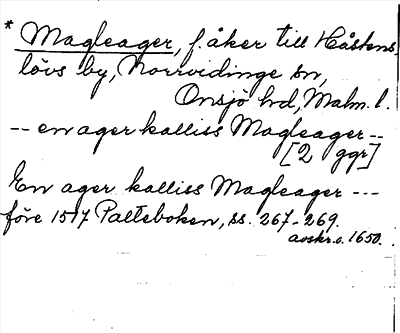 * Magleager, f. åker till Håstens-
lövs by, Norrvidinge sn,
Onsjö hd, Malm. l.
-- en ager kalliss Magleager --
[2 ggr]
En ager kalliss Magleager ---
före 1517 Palteboken, ss. 267-269.
avskr. o. 1650.